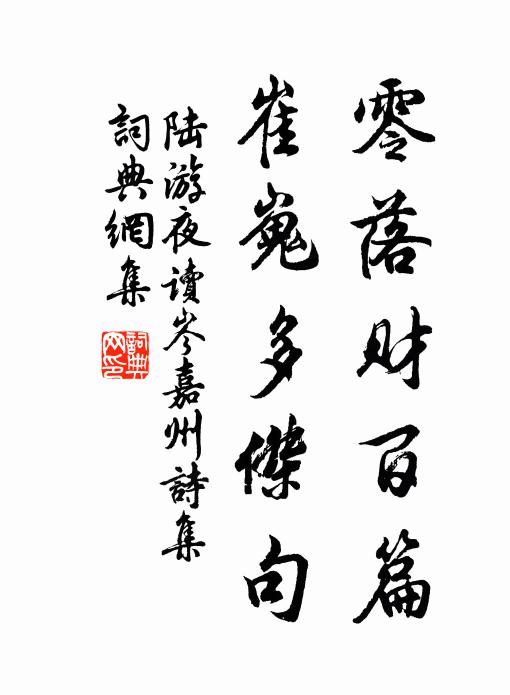 零落財百篇
崔嵬多傑句
陸游夜讀岑嘉州詩集
詞典網集
詞典网印